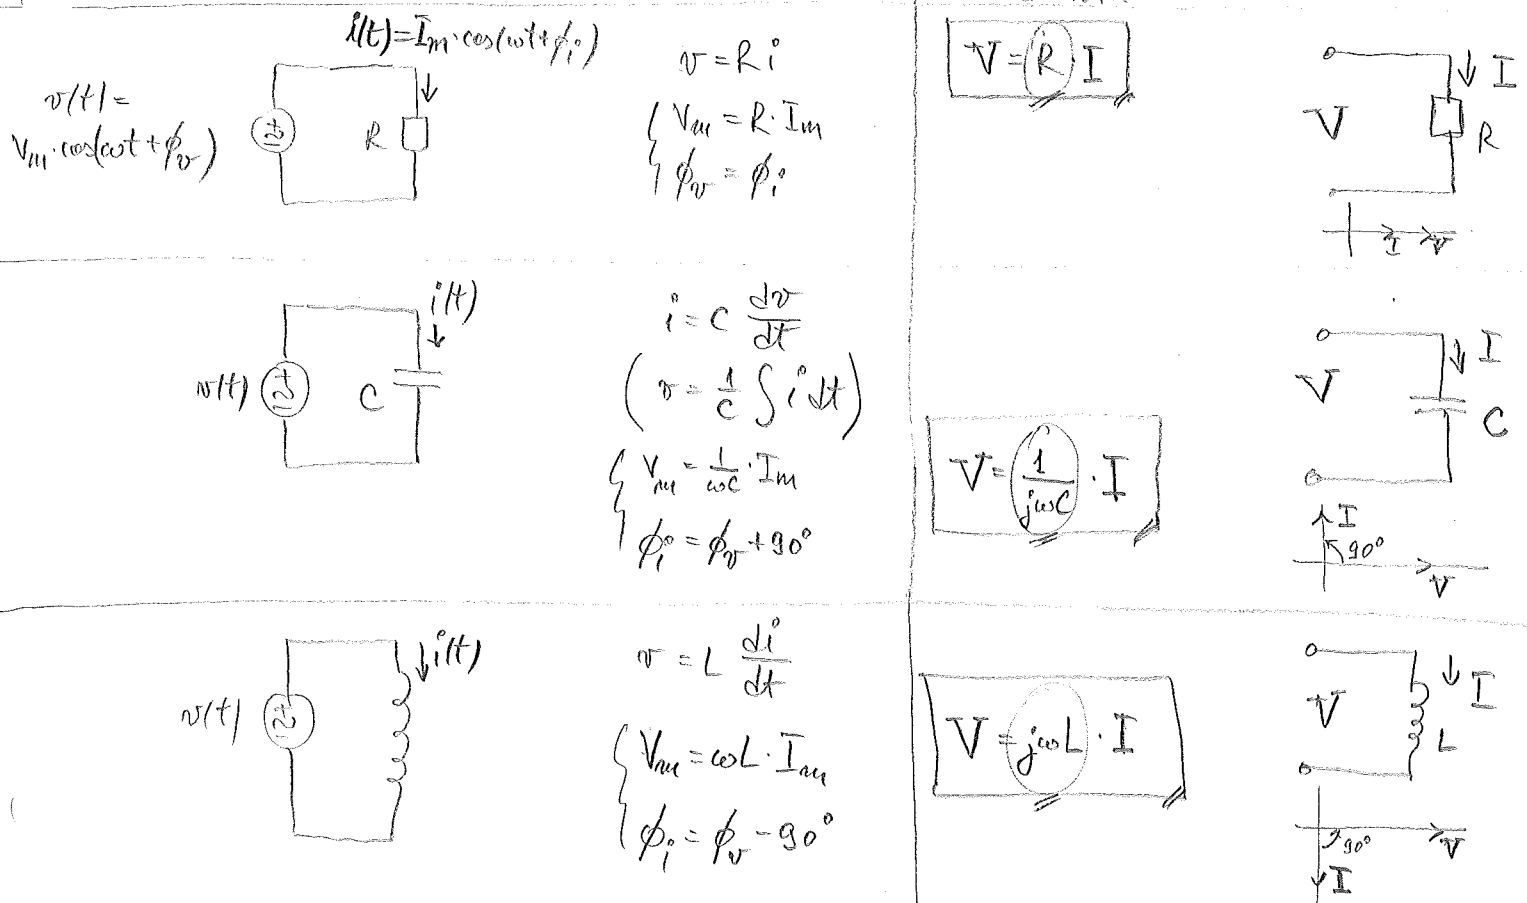 i(t)=Im·cos(ωt+ϕi)
v(t)=
Vm·cos(ωt+ϕv)
R
v=Ri
Vm=R·Im
ϕv=ϕi
V=R I
I
V
R
I V
i(t)
v(t)
C
i=C dv/dt
(v=1/C ∫i dt)
Vm=1/ωC·Im
ϕi=ϕv+90°
V=1/jωC·I
I
V
C
I
90°
V
i(t)
v(t)
v=L di/dt
Vm=ωL·Im
ϕi=ϕv-90°
V=jωL·I
I
V
L
90°
V
I